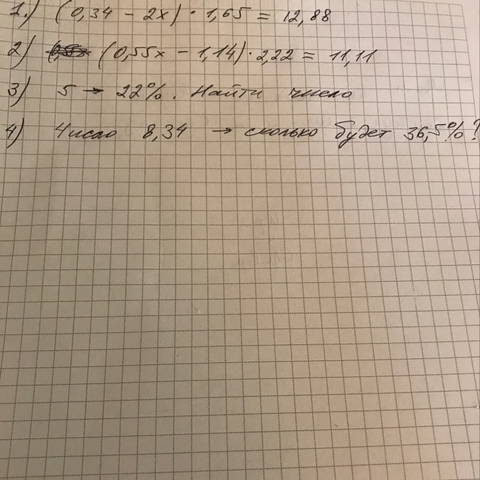 1.) (0,34 - 2x) · 1,65 = 12,88
2) (0,55x - 1,14) · 2,22 = 11,11
3) 5 → 22%. Найти число
4) Число 8,34 → сколько будет 36,5%?